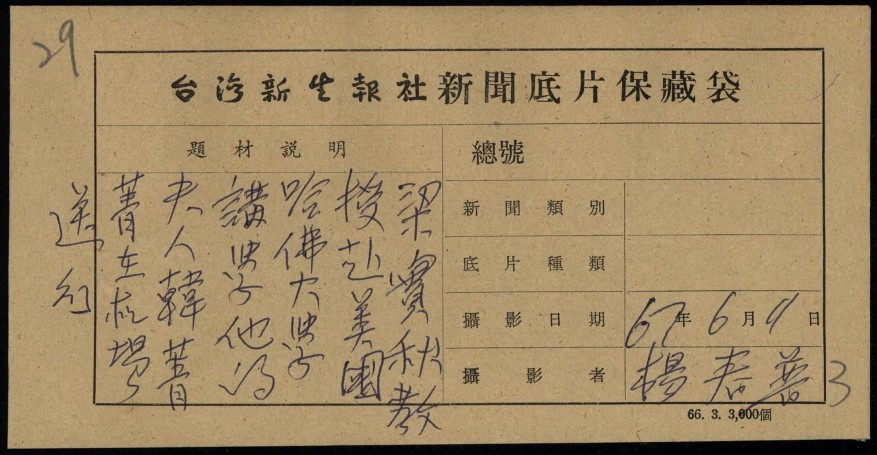 29
台湾新生報社新聞底片保藏袋
題材說明
梁實秋教
授赴美國
哈佛大學
講學他的
夫人韓菁
菁在机場
送行
總號
新聞類別
底片種類
攝影日期 67年6月9日
攝影者 楊春普
3
66. 3. 3,000個